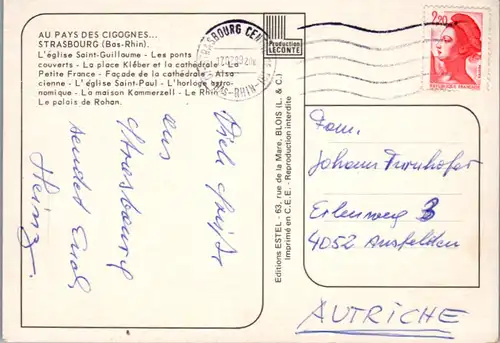 AU PAYS DES CIGOGNES...
STRASBOURG (Bas-Rhin).
L'église Saint-Guillaume - Les ponts
couverts - La place Kléber et la cathédrale - La
Petite France - Façade de la cathédrale - Alsa
cienne - L'église Saint-Paul - L'horloge astro-
nomique - La maison Kammerzell - Le Rhin
Le palais de Rohan.
Viele Grüße
aus
Strasbourg
sendet Euch
Heinz
STRASBOURG CEN
BAS-RHIN
Production
LECONTE
Editions ESTEL - 63, rue de la Mare, BLOIS (L. & C.)
Imprimé en C.E.E. - Reproduction interdite
2,20
REPUBLIQUE FRANCAISE
Fam.
Johann
Erlenweg 3
4052 Ansfelden
AUTRICHE